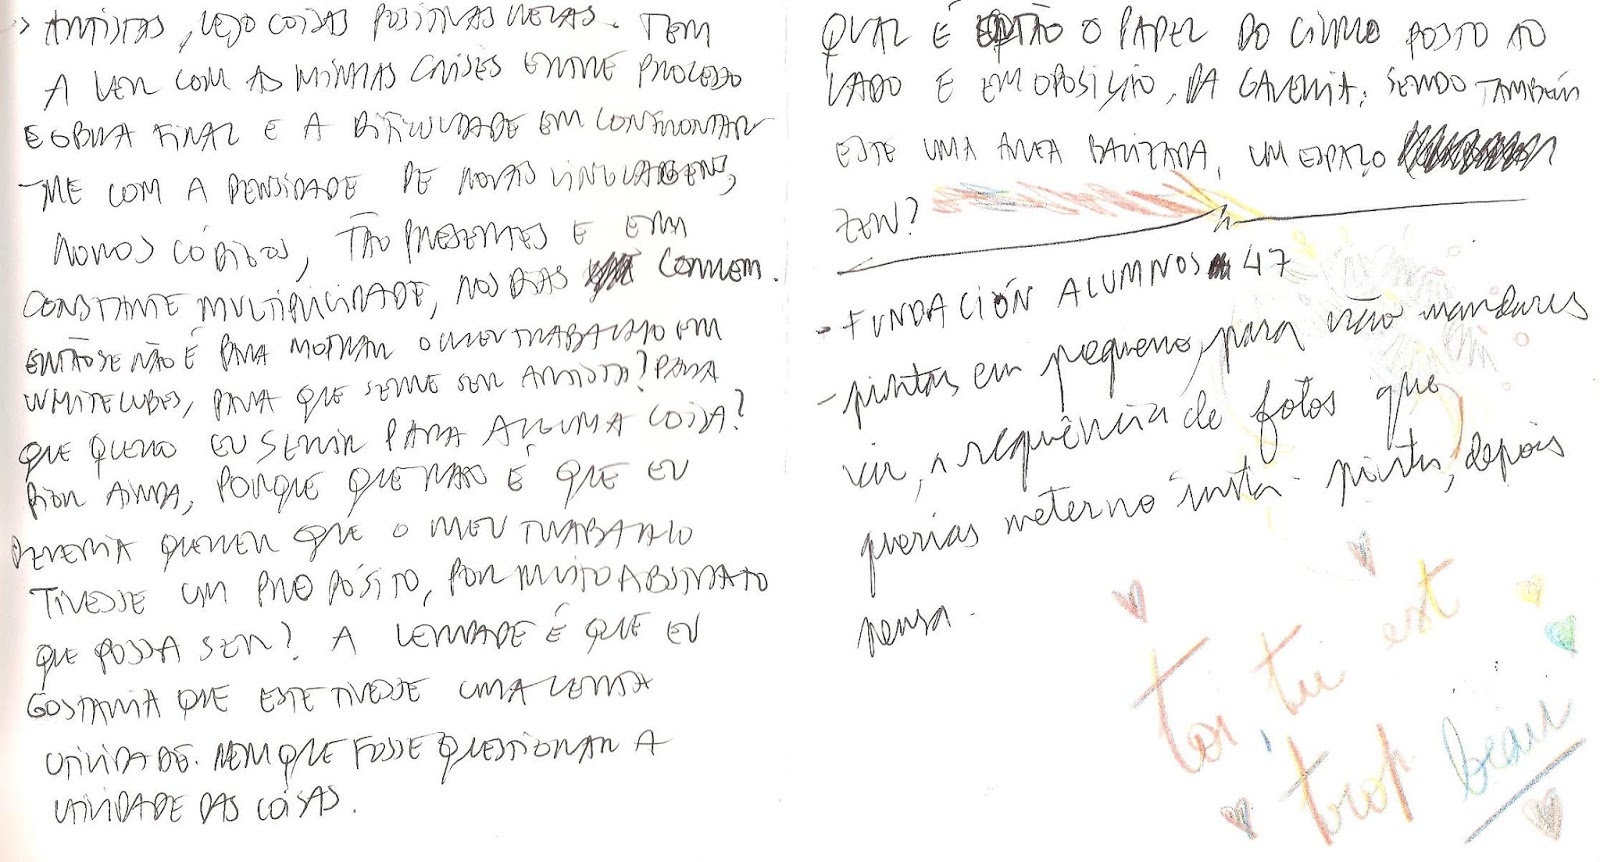 ARTISTAS, VEJO COISAS POSITIVAS NELAS. TEM
A VER COM AS MINHAS CRISES ENTRE PROCESSO
E OBRA FINAL E A DIFICULDADE EM CONFRONTAR
-ME COM A DENSIDADE DE NOVAS LINGUAGENS,
NOVOS CÓDIGOS, TÃO PRESENTES E EM
CONSTANTE MULTIPLICIDADE, NOS DIAS CORREM.
ENTÃO SE NÃO É PARA MOSTRAR O MEU TRABALHO EM
WHITE CUBES, PARA QUE SERVE SER ARTISTA? PARA
QUE QUERO EU SERVIR PARA ALGUMA COISA?
PIOR AINDA, PORQUE QUE RAIO É QUE EU
DEVERIA QUERER QUE O MEU TRABALHO
TIVESSE UM PROPÓSITO, POR MUITO ABSTRATO
QUE POSSA SER? A VERDADE É QUE EU
GOSTARIA QUE ESTE TIVESSE UMA CERTA
UTILIDADE. NEM QUE FOSSE QUESTIONAR A
UTILIDADE DAS COISAS.
QUAL É ENTÃO O PAPEL DO POSTO AO
LADO E EM OPOSIÇÃO, DA GALERIA; SENDO TAMBÉM
ESTE UMA ÁREA BALIZADA, UM ESPAÇO
ZEN?
- FUNDACIÓN ALUMNOS 47
- pintas em pequeno, para não mandares
vir, a sequência de fotos que
querias meter no insta. pinta, depois
pensa.
toi, tu est
trop beau